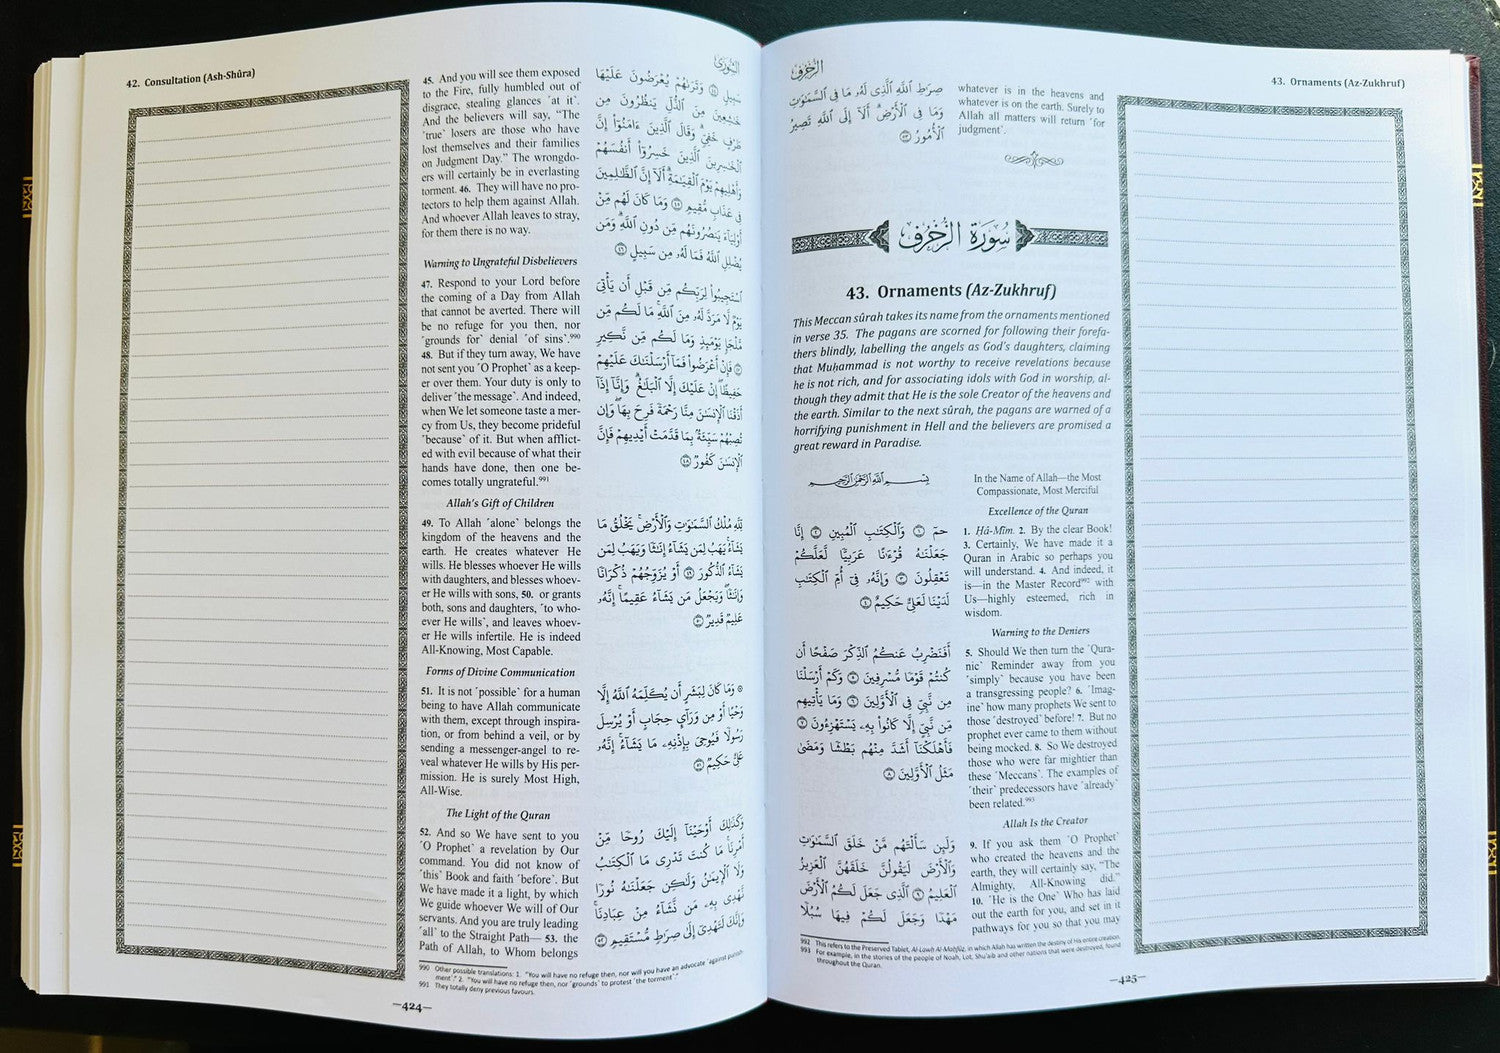 42. Consultation (Ash-Shûra)
45. And you will see them exposed
to the Fire, fully humbled out of
disgrace, stealing glances ˹at it˺.
And the believers will say, “The
˹true˺ losers are those who have
lost themselves and their families
on Judgment Day.” The wrongdo-
ers will certainly be in everlasting
torment. 46. They will have no pro-
tectors to help them against Allah.
And whoever Allah leaves to stray,
for them there is no way.
Warning to Ungrateful Disbelievers
47. Respond to your Lord before
the coming of a Day from Allah
that cannot be averted. There will
be no refuge for you then, nor
˹grounds for˺ denial ˹of sins˺.990
48. But if they turn away, We have
not sent you ˹O Prophet˺ as a keep-
er over them. Your duty is only to
deliver ˹the message˺. And indeed,
when We let someone taste a mer-
cy from Us, they become prideful
˹because˺ of it. But when afflict-
ed with evil because of what their
hands have done, then one be-
comes totally ungrateful.991
Allah's Gift of Children
49. To Allah ˹alone˺ belongs the
kingdom of the heavens and the
earth. He creates whatever He
wills. He blesses whoever He wills
with daughters, and blesses whoev-
er He wills with sons, 50. or grants
both, sons and daughters, ˹to who-
ever He wills˺, and leaves whoev-
er He wills infertile. He is indeed
All-Knowing, Most Capable.
Forms of Divine Communication
51. It is not ˹possible˺ for a human
being to have Allah communicate
with them, except through inspira-
tion, or from behind a veil, or by
sending a messenger-angel to re-
veal whatever He wills by His per-
mission. He is surely Most High,
All-Wise.
The Light of the Quran
52. And so We have sent to you
˹O Prophet˺ a revelation by Our
command. You did not know of
˹this˺ Book and faith ˹before˺. But
We have made it a light, by which
We guide whoever We will of Our
servants. And you are truly leading
˹all˺ to the Straight Path— 53. the
Path of Allah, to Whom belongs
الشُّورَىٰ
سَبِيلٍ ٤٤ وَتَرَىٰهُمْ يُعْرَضُونَ عَلَيْهَا
خَٰشِعِينَ مِنَ ٱلذُّلِّ يَنظُرُونَ مِن
طَرْفٍ خَفِيٍّ وَقَالَ ٱلَّذِينَ ءَامَنُوٓا۟ إِنَّ
ٱلْخَٰسِرِينَ ٱلَّذِينَ خَسِرُوٓا۟ أَنفُسَهُمْ
وَأَهْلِيهِمْ يَوْمَ ٱلْقِيَٰمَةِ أَلَآ إِنَّ ٱلظَّٰلِمِينَ
فِى عَذَابٍ مُّقِيمٍ ٤٥ وَمَا كَانَ لَهُم مِّنْ
أَوْلِيَآءَ يَنصُرُونَهُم مِّن دُونِ ٱللَّهِ وَمَن
يُضْلِلِ ٱللَّهُ فَمَا لَهُۥ مِن سَبِيلٍ ٤٦
ٱسْتَجِيبُوا۟ لِرَبِّكُم مِّن قَبْلِ أَن يَأْتِىَ
يَوْمٌ لَّا مَرَدَّ لَهُۥ مِنَ ٱللَّهِ مَا لَكُم مِّن
مَّلْجَإٍ يَوْمَئِذٍ وَمَا لَكُم مِّن نَّكِيرٍ
٤٧ فَإِنْ أَعْرَضُوا۟ فَمَآ أَرْسَلْنَٰكَ عَلَيْهِمْ
حَفِيظًا إِنْ عَلَيْكَ إِلَّا ٱلْبَلَٰغُ وَإِنَّآ إِذَآ
أَذَقْنَا ٱلْإِنسَٰنَ مِنَّا رَحْمَةً فَرِحَ بِهَا وَإِن
تُصِبْهُمْ سَيِّئَةٌۢ بِمَا قَدَّمَتْ أَيْدِيهِمْ فَإِنَّ
ٱلْإِنسَٰنَ كَفُورٌ ٤٨
لِّلَّهِ مُلْكُ ٱلسَّمَٰوَٰتِ وَٱلْأَرْضِ يَخْلُقُ مَا
يَشَآءُ يَهَبُ لِمَن يَشَآءُ إِنَٰثًا وَيَهَبُ لِمَن
يَشَآءُ ٱلذُّكُورَ ٤٩ أَوْ يُزَوِّجُهُمْ ذُكْرَانًا
وَإِنَٰثًا وَيَجْعَلُ مَن يَشَآءُ عَقِيمًا إِنَّهُۥ
عَلِيمٌ قَدِيرٌ ٥٠
۞ وَمَا كَانَ لِبَشَرٍ أَن يُكَلِّمَهُ ٱللَّهُ إِلَّا
وَحْيًا أَوْ مِن وَرَآئِ حِجَابٍ أَوْ يُرْسِلَ
رَسُولًا فَيُوحِىَ بِإِذْنِهِۦ مَا يَشَآءُ إِنَّهُۥ
عَلِىٌّ حَكِيمٌ ٥١
وَكَذَٰلِكَ أَوْحَيْنَآ إِلَيْكَ رُوحًا مِّنْ
أَمْرِنَا مَا كُنتَ تَدْرِى مَا ٱلْكِتَٰبُ
وَلَا ٱلْإِيمَٰنُ وَلَٰكِن جَعَلْنَٰهُ نُورًا
نَّهْدِى بِهِۦ مَن نَّشَآءُ مِنْ عِبَادِنَا
وَإِنَّكَ لَتَهْدِىٓ إِلَىٰ صِرَٰطٍ مُّسْتَقِيمٍ ٥٢
990 Other possible translations: 1. “You will have no refuge then, nor will you have an advocate ˹against punish-
ment˺.” 2. “You will have no refuge then, nor ˹grounds˺ to protest ˹the torment˺.”
991 They totally deny previous favours.
—424—
الزُّخْرُف
43. Ornaments (Az-Zukhruf)
صِرَٰطِ ٱللَّهِ ٱلَّذِى لَهُۥ مَا فِى ٱلسَّمَٰوَٰتِ
وَمَا فِى ٱلْأَرْضِ أَلَآ إِلَى ٱللَّهِ تَصِيرُ
ٱلْأُمُورُ ٥٣
whatever is in the heavens and
whatever is on the earth. Surely to
Allah all matters will return ˹for
judgment˺.
سُورَةُ الزُّخْرُفِ
43. Ornaments (Az-Zukhruf)
This Meccan sûrah takes its name from the ornaments mentioned
in verse 35. The pagans are scorned for following their forefa-
thers blindly, labelling the angels as God's daughters, claiming
that Muḥammad is not worthy to receive revelations because
he is not rich, and for associating idols with God in worship, al-
though they admit that He is the sole Creator of the heavens and
the earth. Similar to the next sûrah, the pagans are warned of a
horrifying punishment in Hell and the believers are promised a
great reward in Paradise.
بِسْمِ ٱللَّهِ ٱلرَّحْمَٰنِ ٱلرَّحِيمِ
حمٓ ١ وَٱلْكِتَٰبِ ٱلْمُبِينِ ٢ إِنَّا
جَعَلْنَٰهُ قُرْءَٰنًا عَرَبِيًّا لَّعَلَّكُمْ
تَعْقِلُونَ ٣ وَإِنَّهُۥ فِىٓ أُمِّ ٱلْكِتَٰبِ
لَدَيْنَا لَعَلِىٌّ حَكِيمٌ ٤
أَفَنَضْرِبُ عَنكُمُ ٱلذِّكْرَ صَفْحًا أَن
كُنتُمْ قَوْمًا مُّسْرِفِينَ ٥ وَكَمْ أَرْسَلْنَا
مِن نَّبِىٍّ فِى ٱلْأَوَّلِينَ ٦ وَمَا يَأْتِيهِم
مِّن نَّبِىٍّ إِلَّا كَانُوا۟ بِهِۦ يَسْتَهْزِءُونَ ٧
فَأَهْلَكْنَآ أَشَدَّ مِنْهُم بَطْشًا وَمَضَىٰ
مَثَلُ ٱلْأَوَّلِينَ ٨
وَلَئِن سَأَلْتَهُم مَّنْ خَلَقَ ٱلسَّمَٰوَٰتِ
وَٱلْأَرْضَ لَيَقُولُنَّ خَلَقَهُنَّ ٱلْعَزِيزُ
ٱلْعَلِيمُ ٩ ٱلَّذِى جَعَلَ لَكُمُ ٱلْأَرْضَ
مَهْدًا وَجَعَلَ لَكُمْ فِيهَا سُبُلًا
In the Name of Allah—the Most
Compassionate, Most Merciful
Excellence of the Quran
1. Ḥâ-Mĩm. 2. By the clear Book!
3. Certainly, We have made it a
Quran in Arabic so perhaps you
will understand. 4. And indeed, it
is—in the Master Record992 with
Us—highly esteemed, rich in
wisdom.
Warning to the Deniers
5. Should We then turn the ˹Qura-
nic˺ Reminder away from you
˹simply˺ because you have been
a transgressing people? 6. ˹Imag-
ine˺ how many prophets We sent to
those ˹destroyed˺ before! 7. But no
prophet ever came to them without
being mocked. 8. So We destroyed
those who were far mightier than
these ˹Meccans˺. The examples of
˹their˺ predecessors have ˹already˺
been related.993
Allah Is the Creator
9. If you ask them ˹O Prophet˺
who created the heavens and the
earth, they will certainly say, “The
Almighty, All-Knowing did.”
10. ˹He is the One˺ Who has laid
out the earth for you, and set in it
pathways for you so that you may
992 This refers to the Preserved Tablet, Al-Lawḥ Al-Maḥfûẓ, in which Allah has written the destiny of His entire creation.
993 For example, in the stories of the people of Noah, Lot, Shu'aib and other nations that were destroyed, found
throughout the Quran.
—425—